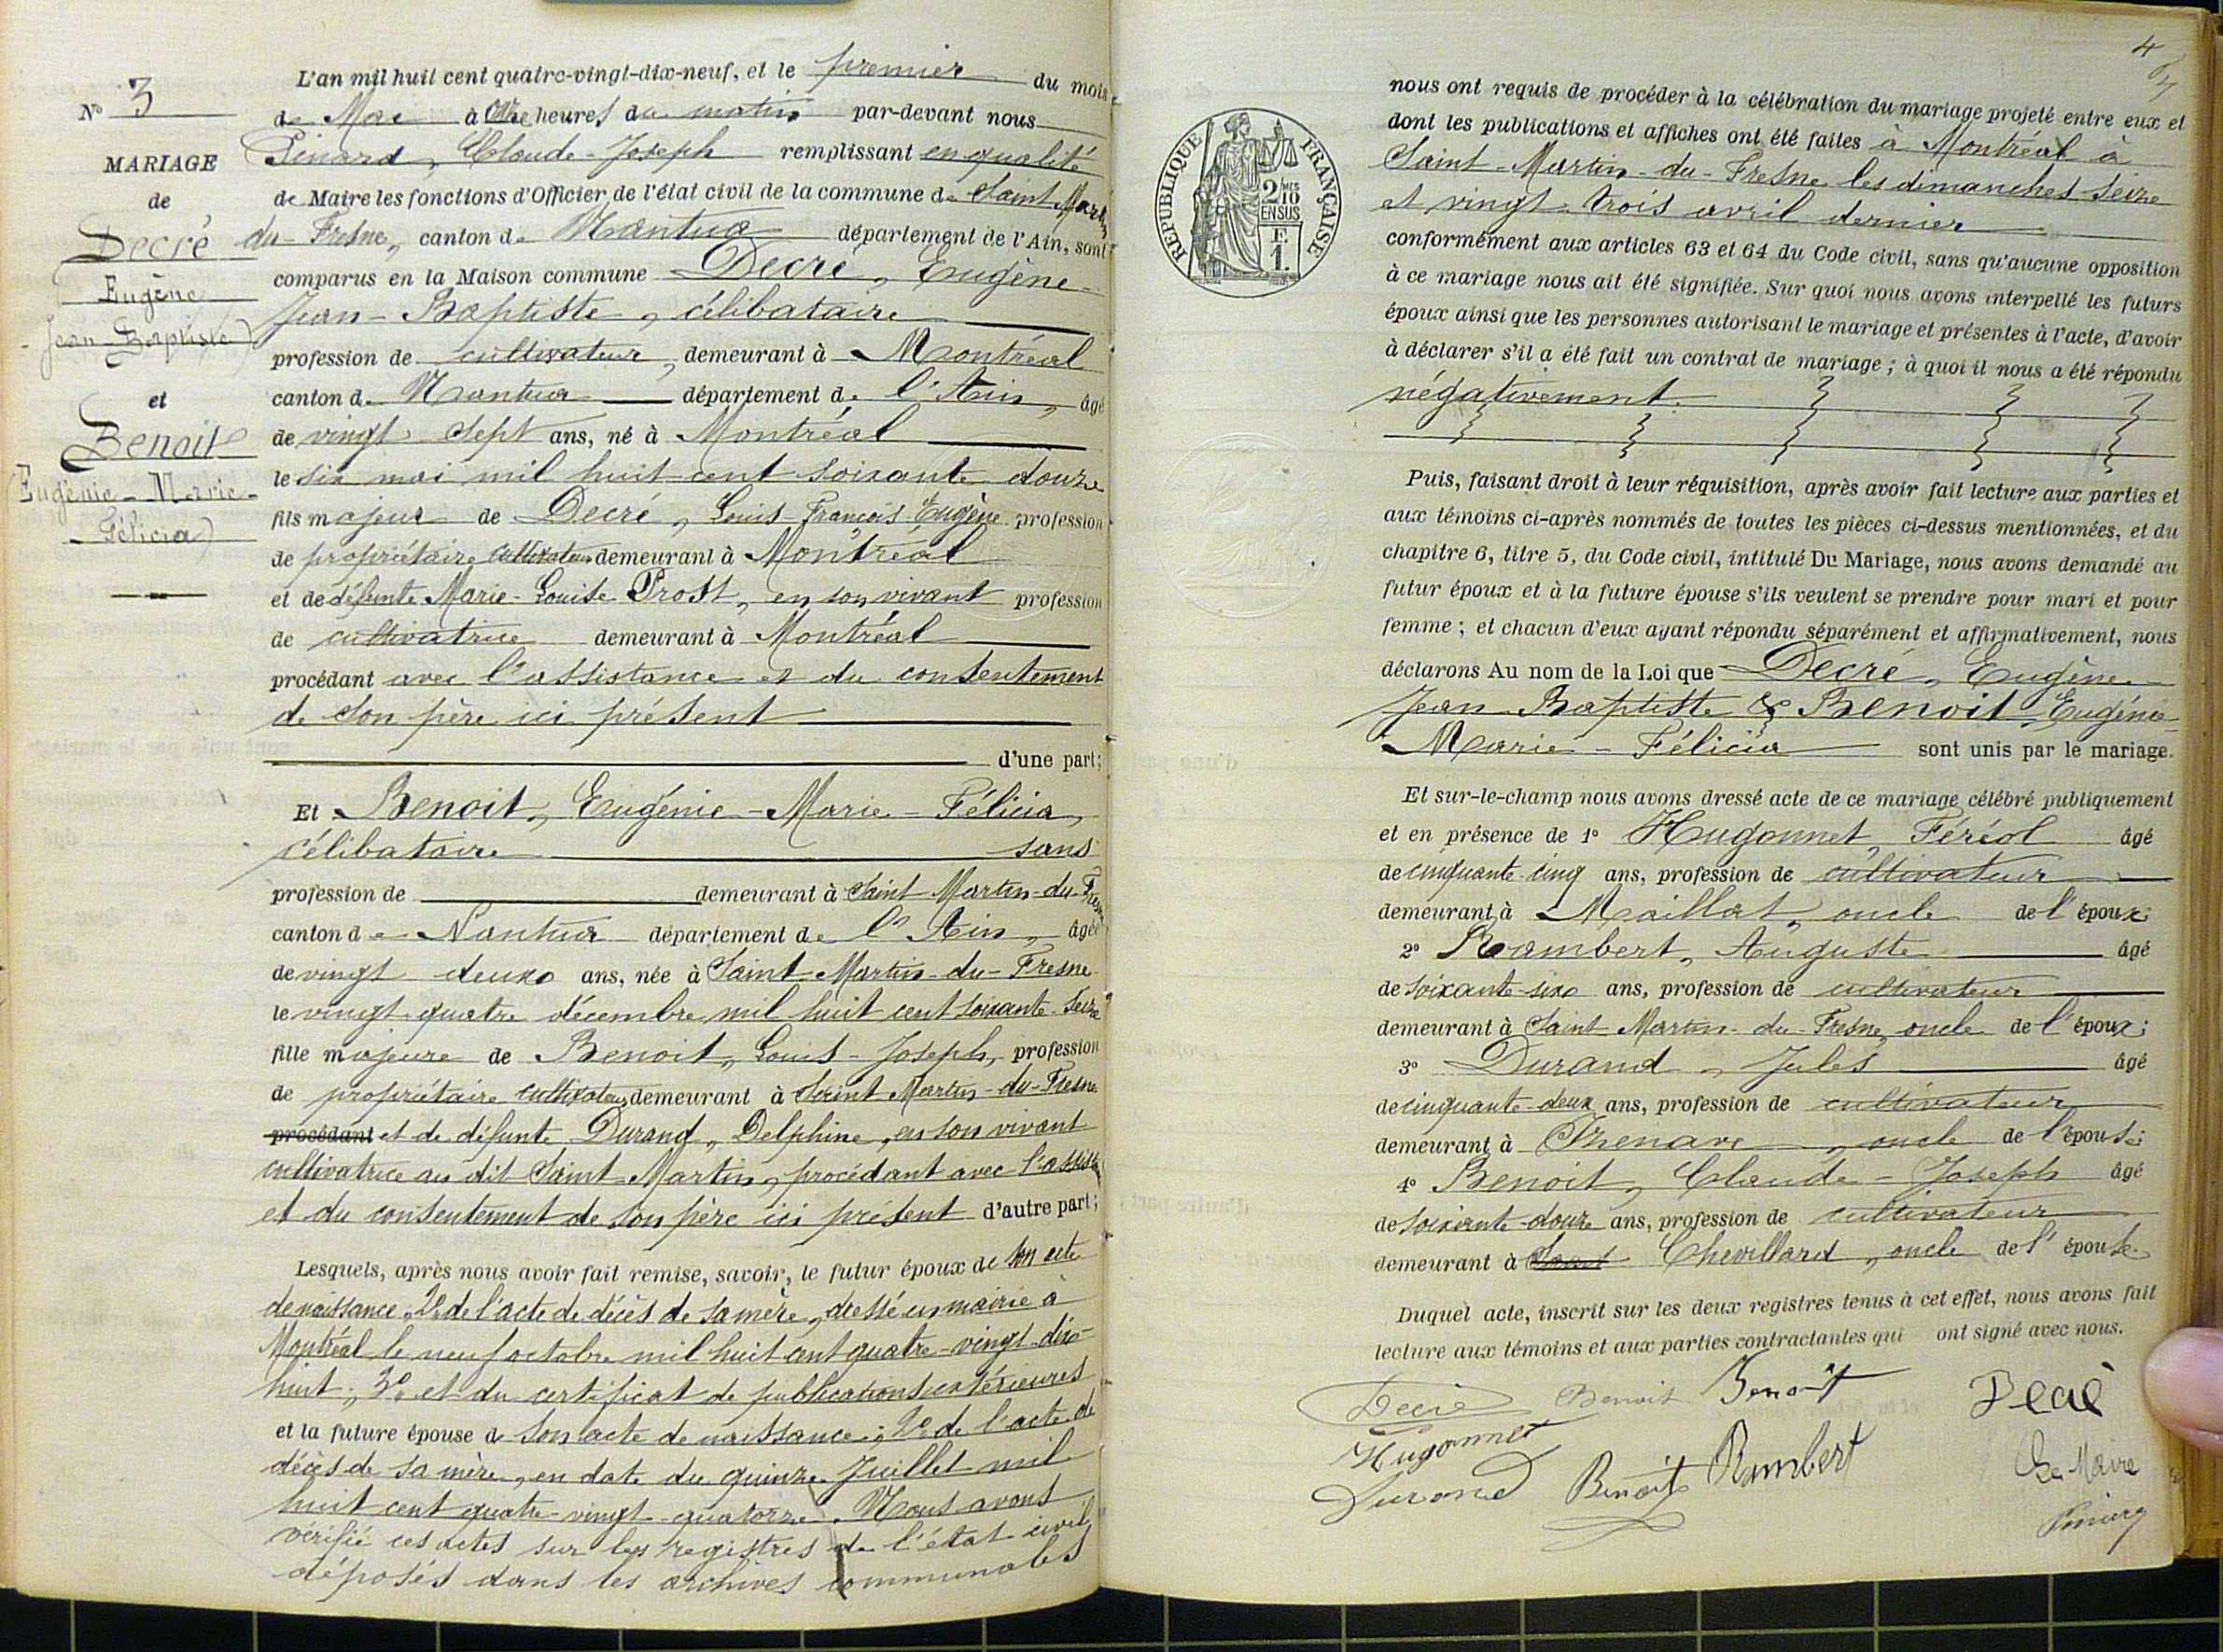 N° 3
MARIAGE
de
Decré
(Eugène
Jean-Baptiste)
et
Benoit
(Eugénie-Marie-
Félicia)
L'an mil huit cent quatre-vingt-dix-neuf, et le premier du mois
de Mai à Onze heures du matin par-devant nous
Pinard, Claude-Joseph remplissant en qualité
de Maire les fonctions d'Officier de l'état civil de la commune de Saint Martin
du-Fresne, canton de Nantua département de l'Ain, sont
comparus en la Maison commune Decré, Eugène
Jean-Baptiste, célibataire
profession de cultivateur, demeurant à Montréal
canton de Nantua département de l'Ain, âgé
de vingt sept ans, né à Montréal
le six mai mil huit cent soixante douze
fils majeur de Decré, Louis François Eugène profession
de propriétaire cultivateur demeurant à Montréal
et de défunte Marie-Louise Prost, en son vivant profession
de cultivatrice demeurant à Montréal
procédant avec l'assistance et du consentement
de son père ici présent
d'une part;
Et Benoit, Eugénie-Marie-Félicia,
célibataire sans
profession de demeurant à Saint Martin-du-Fresne
canton de Nantua département de l'Ain, âgée
de vingt deux ans, née à Saint Martin-du-Fresne
le vingt-quatre décembre mil huit cent soixante-seize
fille majeure de Benoit, Louis-Joseph, profession
de propriétaire cultivateur demeurant à Saint Martin-du-Fresne
procédant et de défunte Durand, Delphine, en son vivant
cultivatrice au dit Saint-Martin, procédant avec l'assist
et du consentement de son père ici présent d'autre part;
Lesquels, après nous avoir fait remise, savoir, le futur époux de son acte
de naissance, 2° de l'acte de décès de sa mère, dressé en mairie à
Montréal le neuf octobre mil huit cent quatre-vingt-dix-
huit; 3° et du certificat de publications extérieures
et la future épouse de son acte de naissance; 2° de l'acte de
décès de sa mère, en date du quinze Juillet mil
huit cent quatre-vingt-quatorze. Nous avons
vérifié ces actes sur les registres de l'état civil
déposés dans les archives communales
4
nous ont requis de procéder à la célébration du mariage projeté entre eux et
dont les publications et affiches ont été faites à Montréal à
Saint-Martin-du-Fresne les dimanches seize
et vingt-trois avril dernier
conformément aux articles 63 et 64 du Code civil, sans qu'aucune opposition
à ce mariage nous ait été signifiée. Sur quoi nous avons interpellé les futurs
époux ainsi que les personnes autorisant le mariage et présentes à l'acte, d'avoir
à déclarer s'il a été fait un contrat de mariage; à quoi il nous a été répondu
négativement.
RÉPUBLIQUE FRANÇAISE
2 MES
10
EN SUS
F.
1.
Puis, faisant droit à leur réquisition, après avoir fait lecture aux parties et
aux témoins ci-après nommés de toutes les pièces ci-dessus mentionnées, et du
chapitre 6, titre 5, du Code civil, intitulé Du Mariage, nous avons demandé au
futur époux et à la future épouse s'ils veulent se prendre pour mari et pour
femme; et chacun d'eux ayant répondu séparément et affirmativement, nous
déclarons Au nom de la Loi que Decré, Eugène
Jean Baptiste & Benoit, Eugénie-
Marie-Félicia sont unis par le mariage.
Et sur-le-champ nous avons dressé acte de ce mariage célébré publiquement
et en présence de 1° Hugonnet, Féréol âgé
de cinquante-cinq ans, profession de cultivateur
demeurant à Maillat, oncle de l'époux;
2° Rambert, Auguste âgé
de soixante-six ans, profession de cultivateur
demeurant à Saint Martin-du-Fresne, oncle de l'époux;
3° Durand, Jules âgé
de cinquante-deux ans, profession de cultivateur
demeurant à Chenave, oncle de l'épouse;
4° Benoit, Claude-Joseph âgé
de soixante-douze ans, profession de cultivateur
demeurant à Chevillard, oncle de l'épouse.
Duquel acte, inscrit sur les deux registres tenus à cet effet, nous avons fait
lecture aux témoins et aux parties contractantes qui ont signé avec nous.
Decré Benoit Benoit Decré
Hugonnet
Durand Benoit Rambert
Le Maire